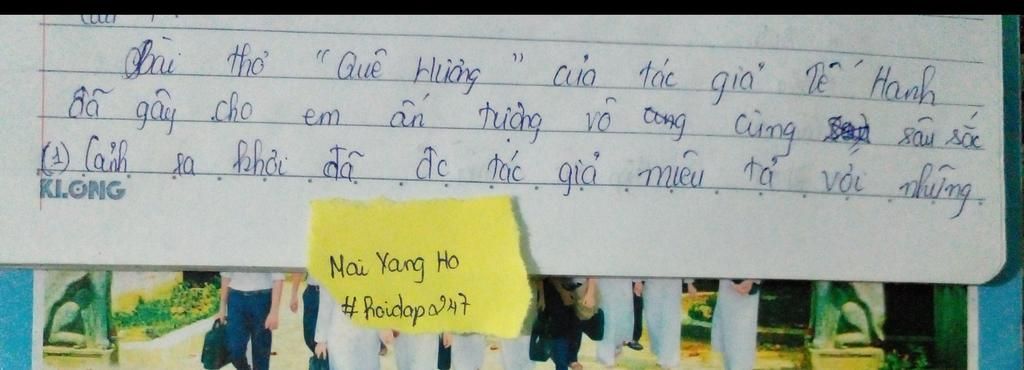 Bài thơ "Quê Hương" của tác giả Tế Hanh
đã gây cho em ấn tượng vô cùng sâu sắc
(1) Cảnh ra khơi đã đc tác giả miêu tả với những
KLONG
Mai Yang Ho
#hoidap247